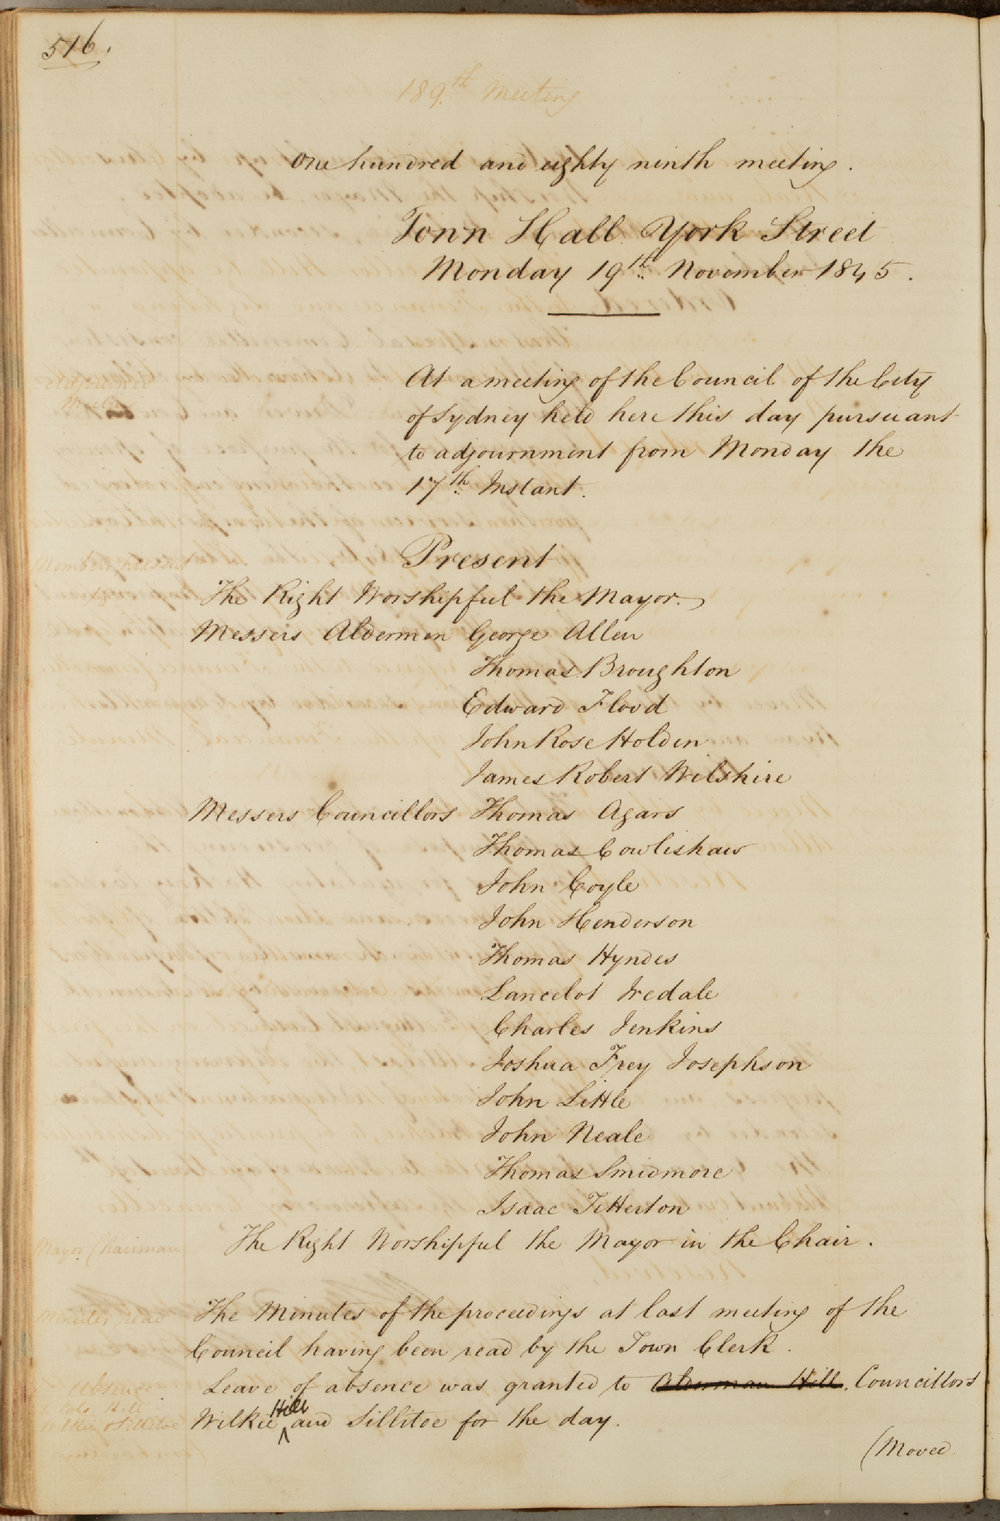 516.
189th Meeting
One hundred and eighty ninth meeting.
Town Hall York Street
Monday 19th November 1845.
At a meeting of the Council of the City
of Sydney held here this day pursuant
to adjournment from Monday the
17th Instant.
Present
Members present
The Right Worshipful the Mayor.
Messers Aldermen George Allen
Thomas Broughton
Edward Flood
John Rose Holden
James Robert Wilshire
Messers Councillors Thomas Agars
Thomas Cowlishaw
John Coyle
John Henderson
Thomas Hyndes
Lancelot Iredale
Charles Jenkins
Joshua Frey Josephson
John Little
John Neale
Thomas Smidmore
Isaac Titterton
Mayor Chairman
The Right Worshipful the Mayor in the Chair.
Minutes read
The Minutes of the proceedings at last meeting of the
Council having been read by the Town Clerk.
Leave of absence was granted to Alderman Hill, Councillors
Wilkie Hill and Sillitoe for the day.
(Moved